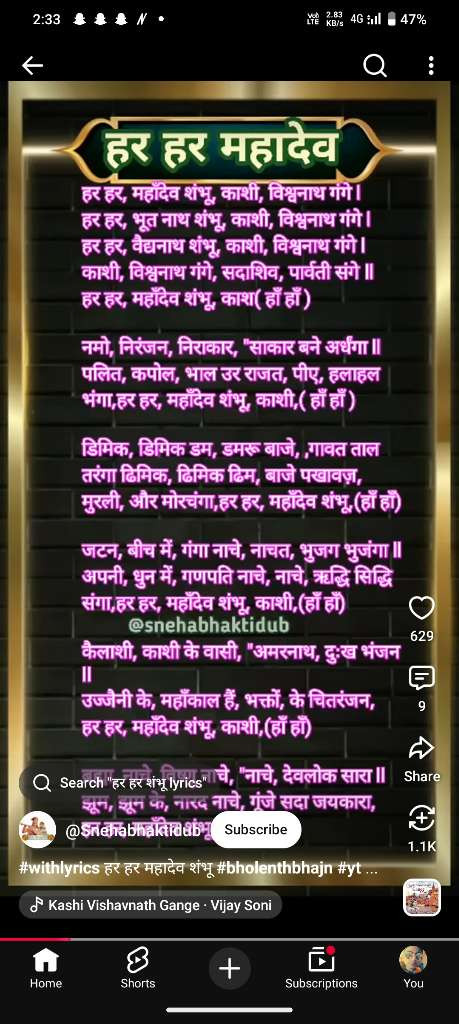 2:33
Vo)) LTE 2.83 KB/s 4G 47%
हर हर महादेव
हर हर, महाँदेव शंभू, काशी, विश्वनाथ गंगे।
हर हर, भूत नाथ शंभू, काशी, विश्वनाथ गंगे।
हर हर, वैद्यनाथ शंभू, काशी, विश्वनाथ गंगे।
काशी, विश्वनाथ गंगे, सदाशिव, पार्वती संगे॥
हर हर, महाँदेव शंभू, काश( हाँ हाँ )
नमो, निरंजन, निराकार, "साकार बने अर्धंगा॥
पलित, कपोल, भाल उर राजत, पीए, हलाहल
भंगा,हर हर, महाँदेव शंभू, काशी,( हाँ हाँ )
डिमिक, डिमिक डम, डमरू बाजे, ,गावत ताल
तरंगा ढिमिक, ढिमिक ढिम, बाजे पखावज़,
मुरली, और मोरचंगा,हर हर, महाँदेव शंभू,(हाँ हाँ)
जटन, बीच में, गंगा नाचे, नाचत, भुजग भुजंगा॥
अपनी, धुन में, गणपति नाचे, नाचे, ऋद्धि सिद्धि
संगा,हर हर, महाँदेव शंभू, काशी,(हाँ हाँ)
@snehabhaktidub
कैलाशी, काशी के वासी, "अमरनाथ, दुःख भंजन
॥
उज्जैनी के, महाँकाल हैं, भक्तों, के चितरंजन,
हर हर, महाँदेव शंभू, काशी,(हाँ हाँ)
नाचे, "नाचे, देवलोक सारा॥
झूम, झूम के, नारद नाचे, गूंजे सदा जयकारा,
महाँदेव शंभू
629
9
Share
1.1K
Search "हर हर शंभू lyrics"
@Snehabhaktidub Subscribe
#withlyrics हर हर महादेव शंभू #bholenthbhajn #yt ...
Kashi Vishavnath Gange · Vijay Soni
Home Shorts Subscriptions You